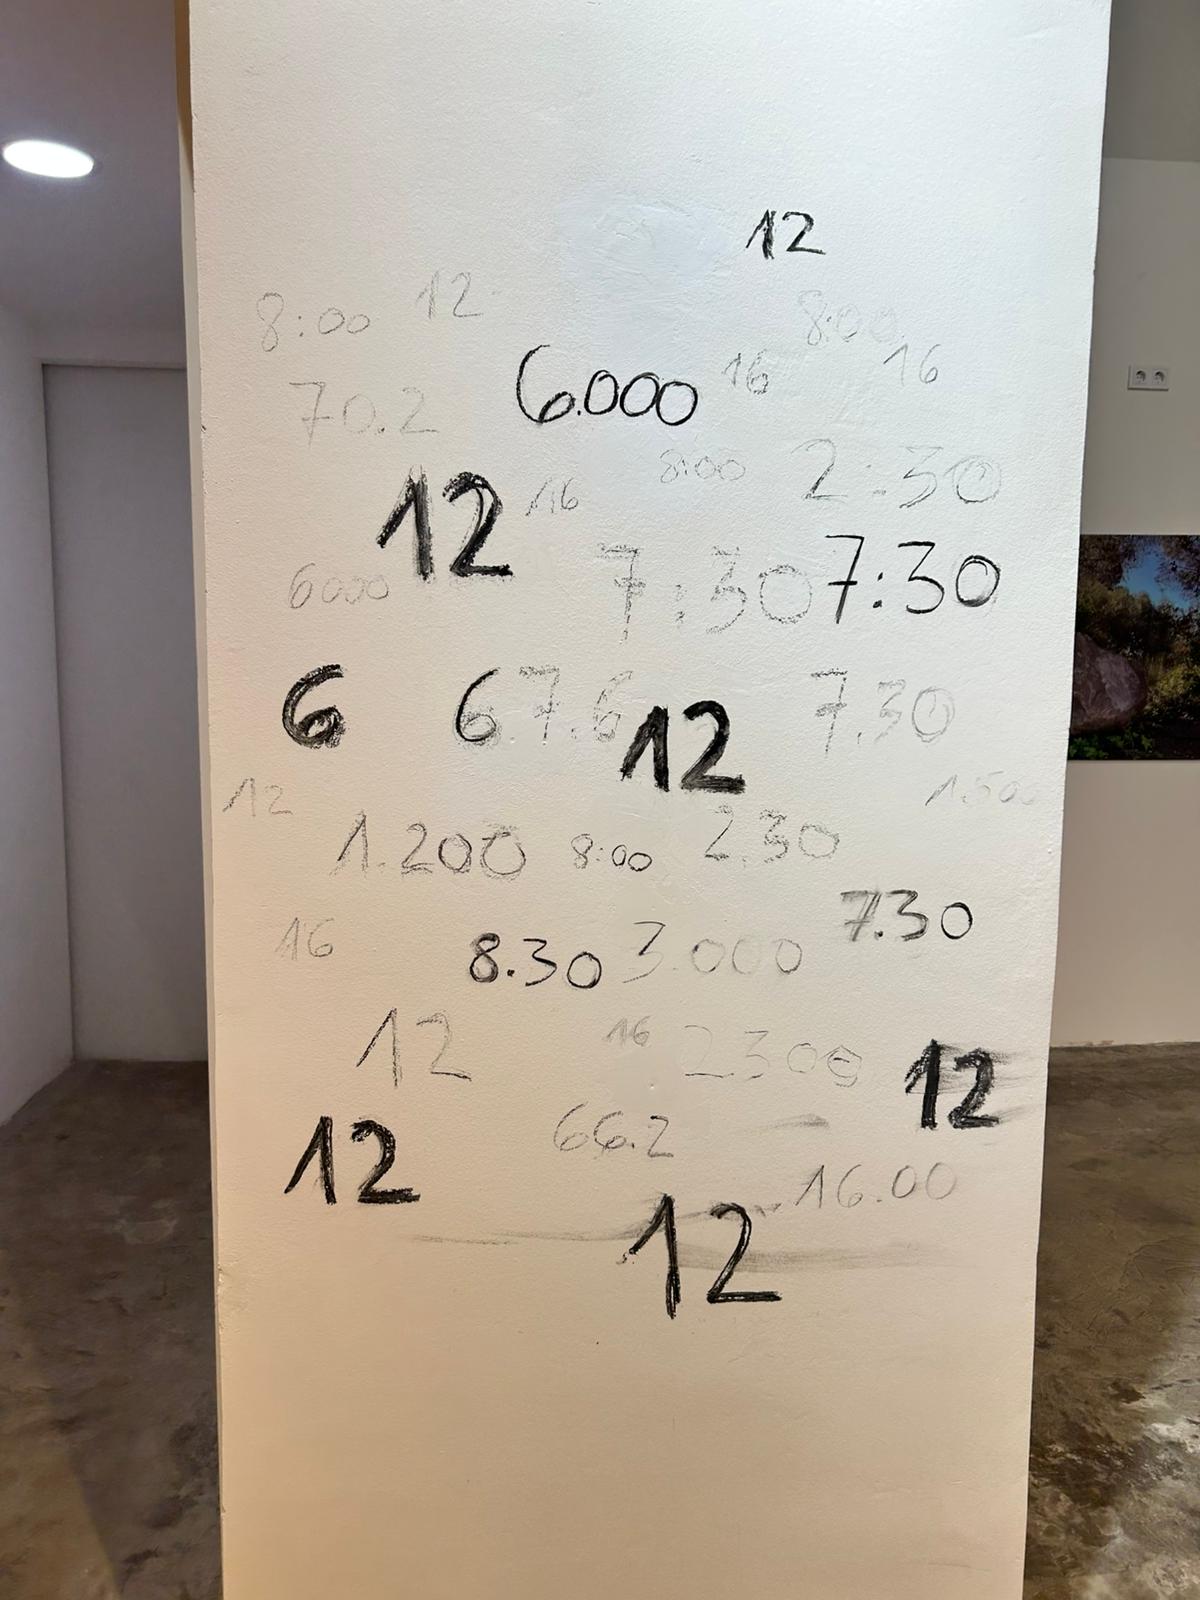 12
8:00 12 8:00
70.2 6.000 16 16
12 16 8:00 2:30
6000 7:30 7:30
6 67.6 12 7.30
12 1.500
1.200 8:00 2.30
16 8.30 3.000 7.30
12 16 2300 12
12 66.2 16.00
12